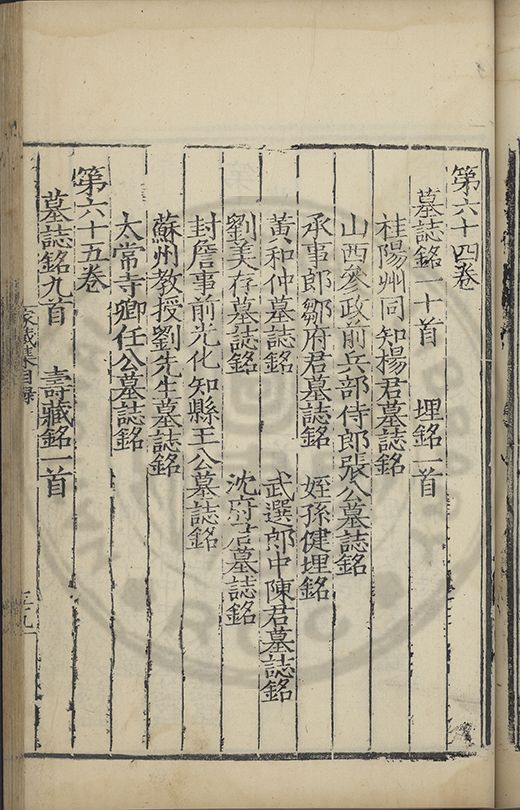 第六十四卷
墓誌銘一十首　埋銘一首
桂陽州同知楊君墓誌銘
山西參政前兵部侍郎張公墓誌銘
承事郎鄒府君墓誌銘　姪孫健埋銘
黃和仲墓誌銘　武選郎中陳君墓誌銘
劉美存墓誌銘　沈府君墓誌銘
封詹事前光化知縣王公墓誌銘
蘇州教授劉先生墓誌銘
太常寺卿任公墓誌銘
第六十五卷
墓誌銘九首　壽藏銘一首
家藏集目錄